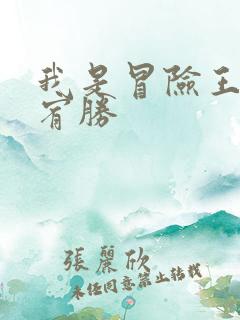 我是冒險王
宵勝
張麗欣
未經同意禁止轉載